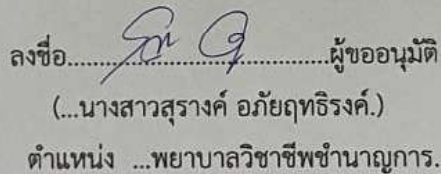 ลงชื่อ..............................................ผู้ขออนุมัติ
(...นางสาวสุรางค์ อภัยฤทธิรงค์.)
ตำแหน่ง ...พยาบาลวิชาชีพชำนาญการ.